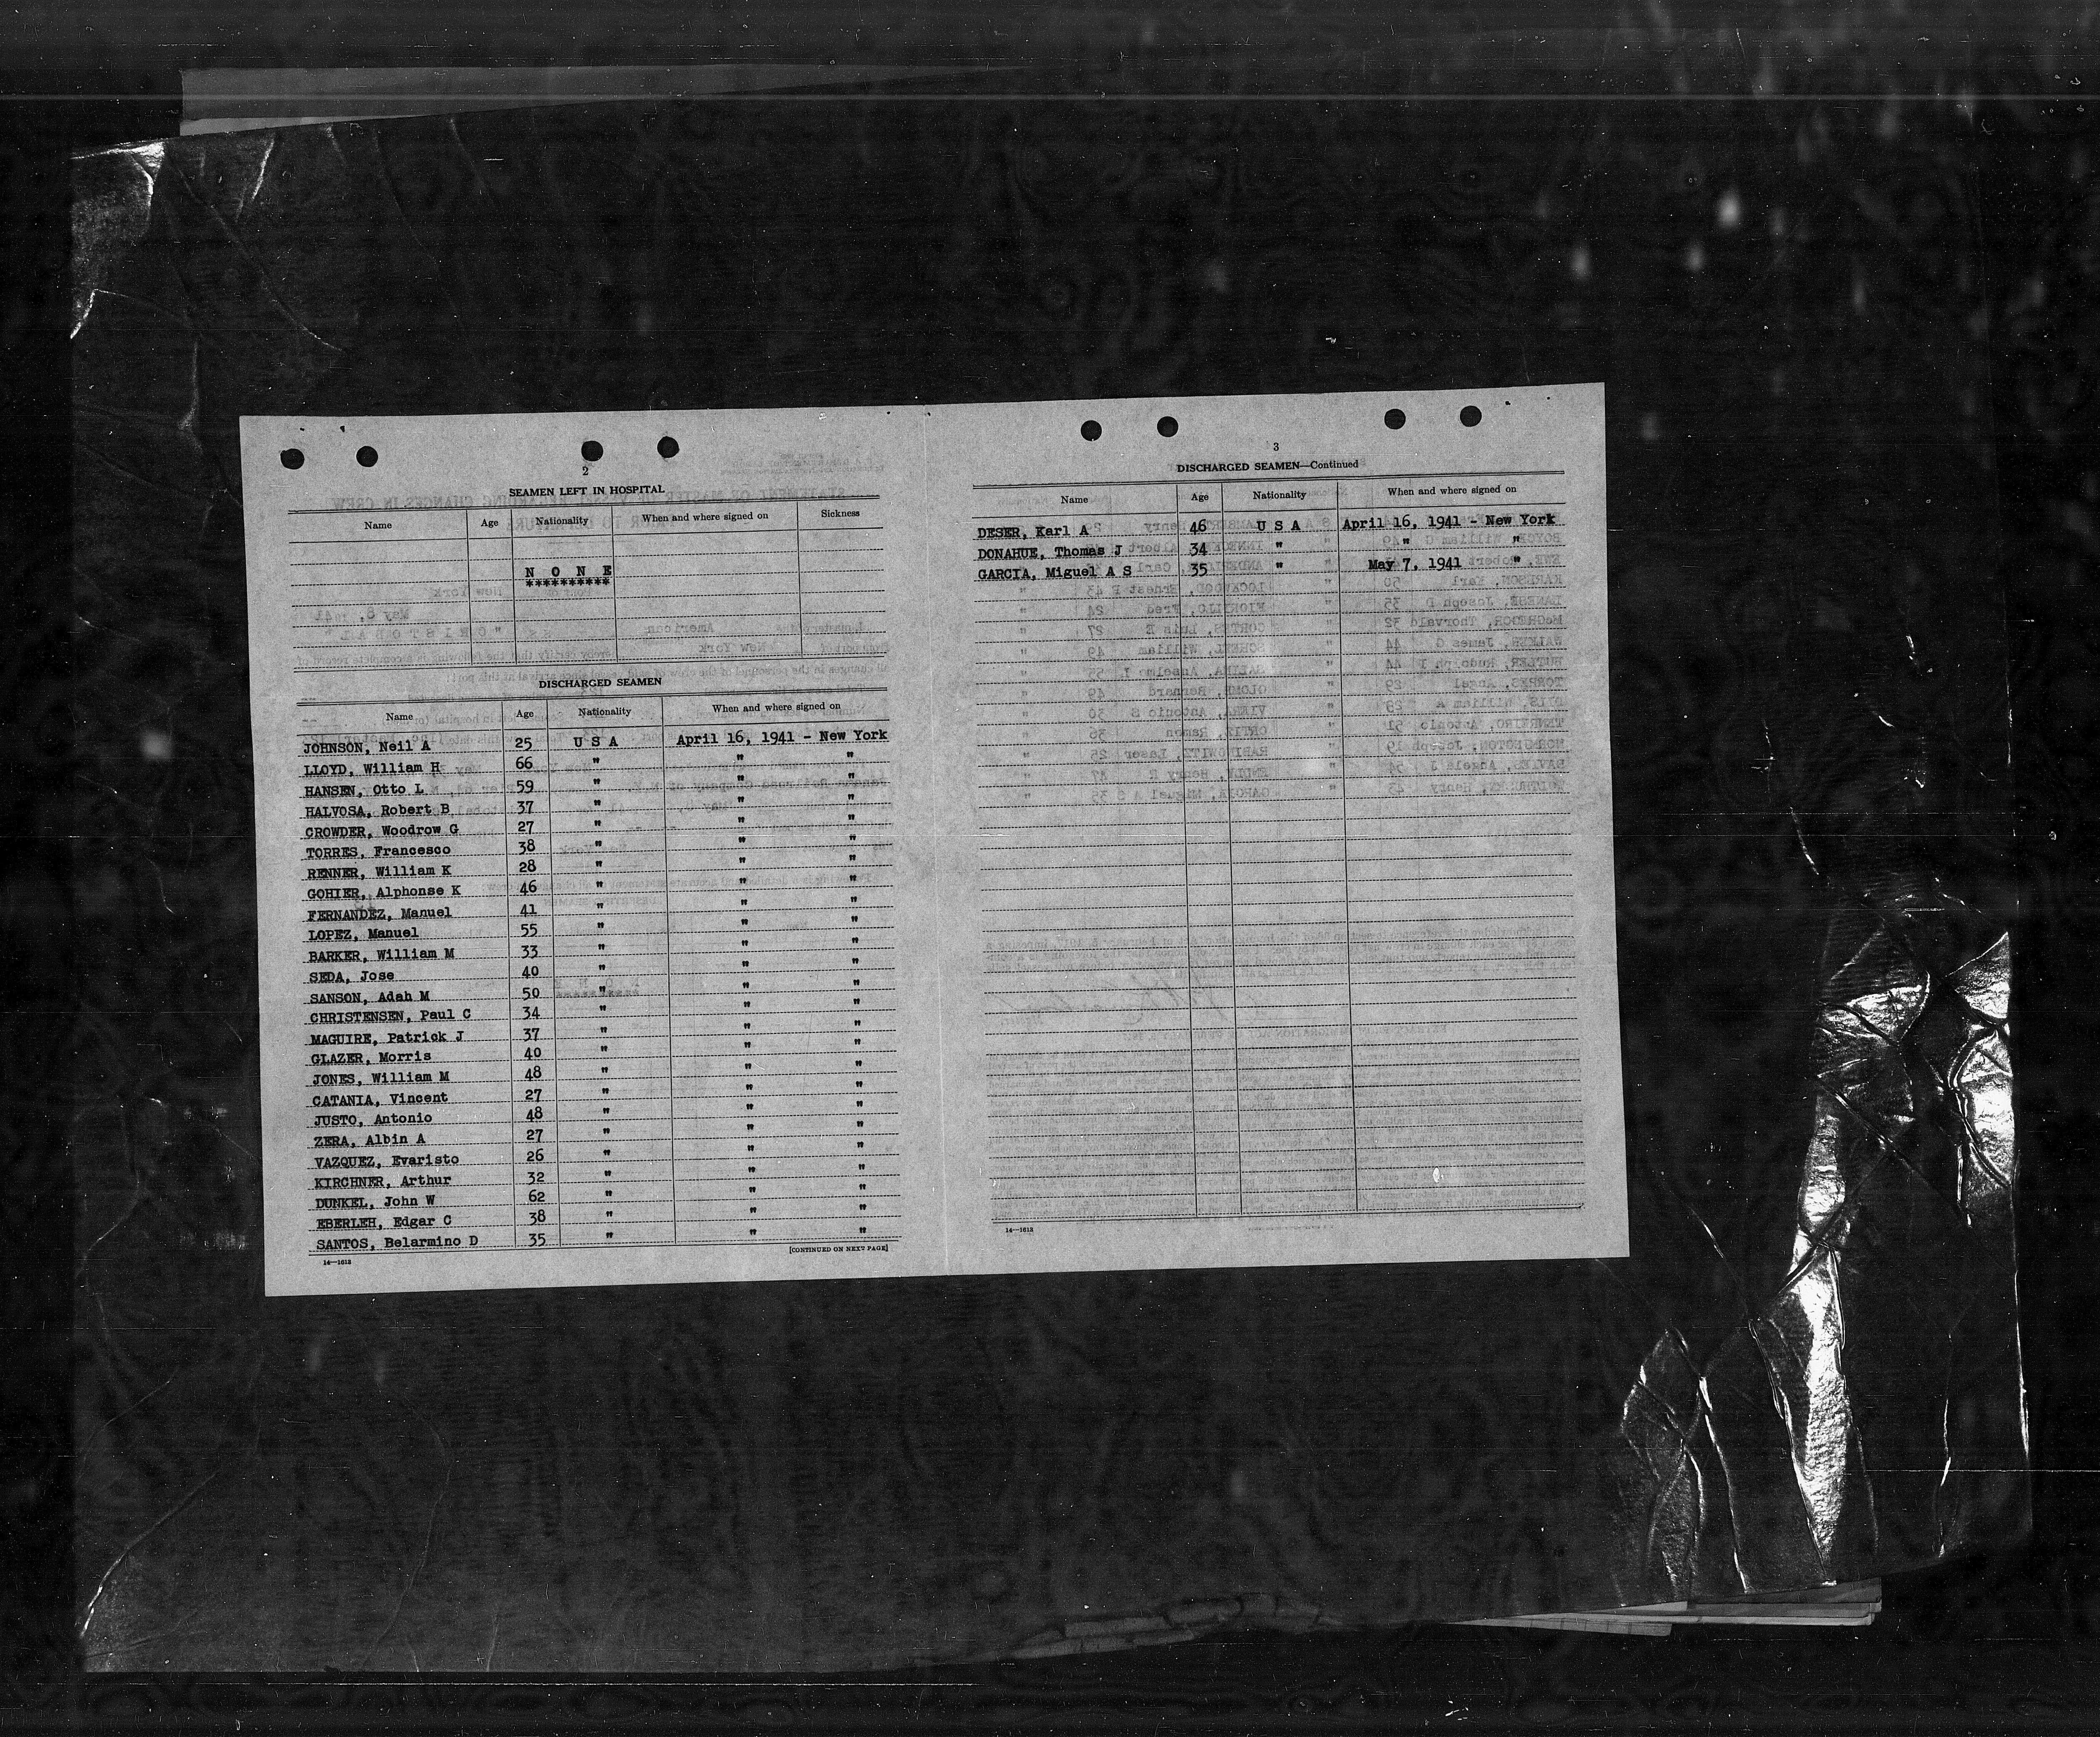 2
SEAMEN LEFT IN HOSPITAL
Name Age Nationality When and where signed on Sickness
N O N E
**********
DISCHARGED SEAMEN
Name Age Nationality When and where signed on
JOHNSON, Neil A 25 U S A April 16, 1941 - New York
LLOYD, William H 66 " " "
HANSEN, Otto L 59 " " "
HALVOSA, Robert B 37 " " "
CROWDER, Woodrow G 27 " " "
TORRES, Francesco 38 " " "
RENNER, William K 28 " " "
GOHIER, Alphonse K 46 " " "
FERNANDEZ, Manuel 41 " " "
LOPEZ, Manuel 55 " " "
BARKER, William M 33 " " "
SEDA, Jose 40 " " "
SANSON, Adah M 50 " " "
CHRISTENSEN, Paul C 34 " " "
MAGUIRE, Patrick J 37 " " "
GLAZER, Morris 40 " " "
JONES, William M 48 " " "
CATANIA, Vincent 27 " " "
JUSTO, Antonio 48 " " "
ZERA, Albin A 27 " " "
VAZQUEZ, Evaristo 26 " " "
KIRCHNER, Arthur 32 " " "
DUNKEL, John W 62 " " "
EBERLEH, Edgar C 38 " " "
SANTOS, Belarmino D 35 " " "
[CONTINUED ON NEXT PAGE]
14—1613
3
DISCHARGED SEAMEN—Continued
Name Age Nationality When and where signed on
DESER, Karl A 46 U S A April 16, 1941 - New York
DONAHUE, Thomas J 34 " " "
GARCIA, Miguel A S 35 " May 7, 1941 "
14—1613